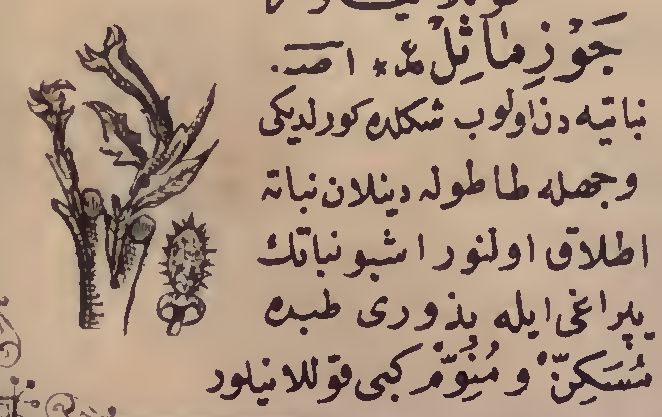 جَوْزِمَاثِلْ عـ * اصـ.
نباتيه دن اولوب شكلده كورلديكى
وجهله طاطوله دينلان نباته
اطلاق اولنور اشبو نباتك
يپراغى ايله بذورى طبده
مُسَكِّنْ و مُنَوِّمْ كبى قوللانيلور